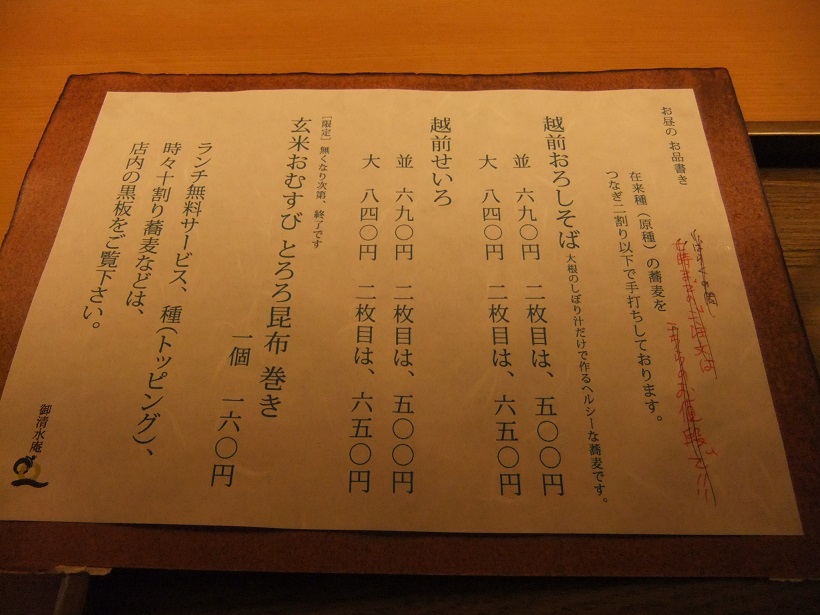 お昼の お品書き
在来種（原種）の蕎麦を
つなぎ二割り以下で手打ちしております。
越前おろしそば 大根のしぼり汁だけで作るヘルシーな蕎麦です。
並 六九〇円 二枚目は、五〇〇円
大 八四〇円 二枚目は、六五〇円
越前せいろ
並 六九〇円 二枚目は、五〇〇円
大 八四〇円 二枚目は、六五〇円
［限定］無くなり次第、終了です
玄米おむすび とろろ昆布 巻き
一個 一六〇円
ランチ無料サービス、種（トッピング）、
時々十割り蕎麦などは、
店内の黒板をご覧下さい。
御清水庵